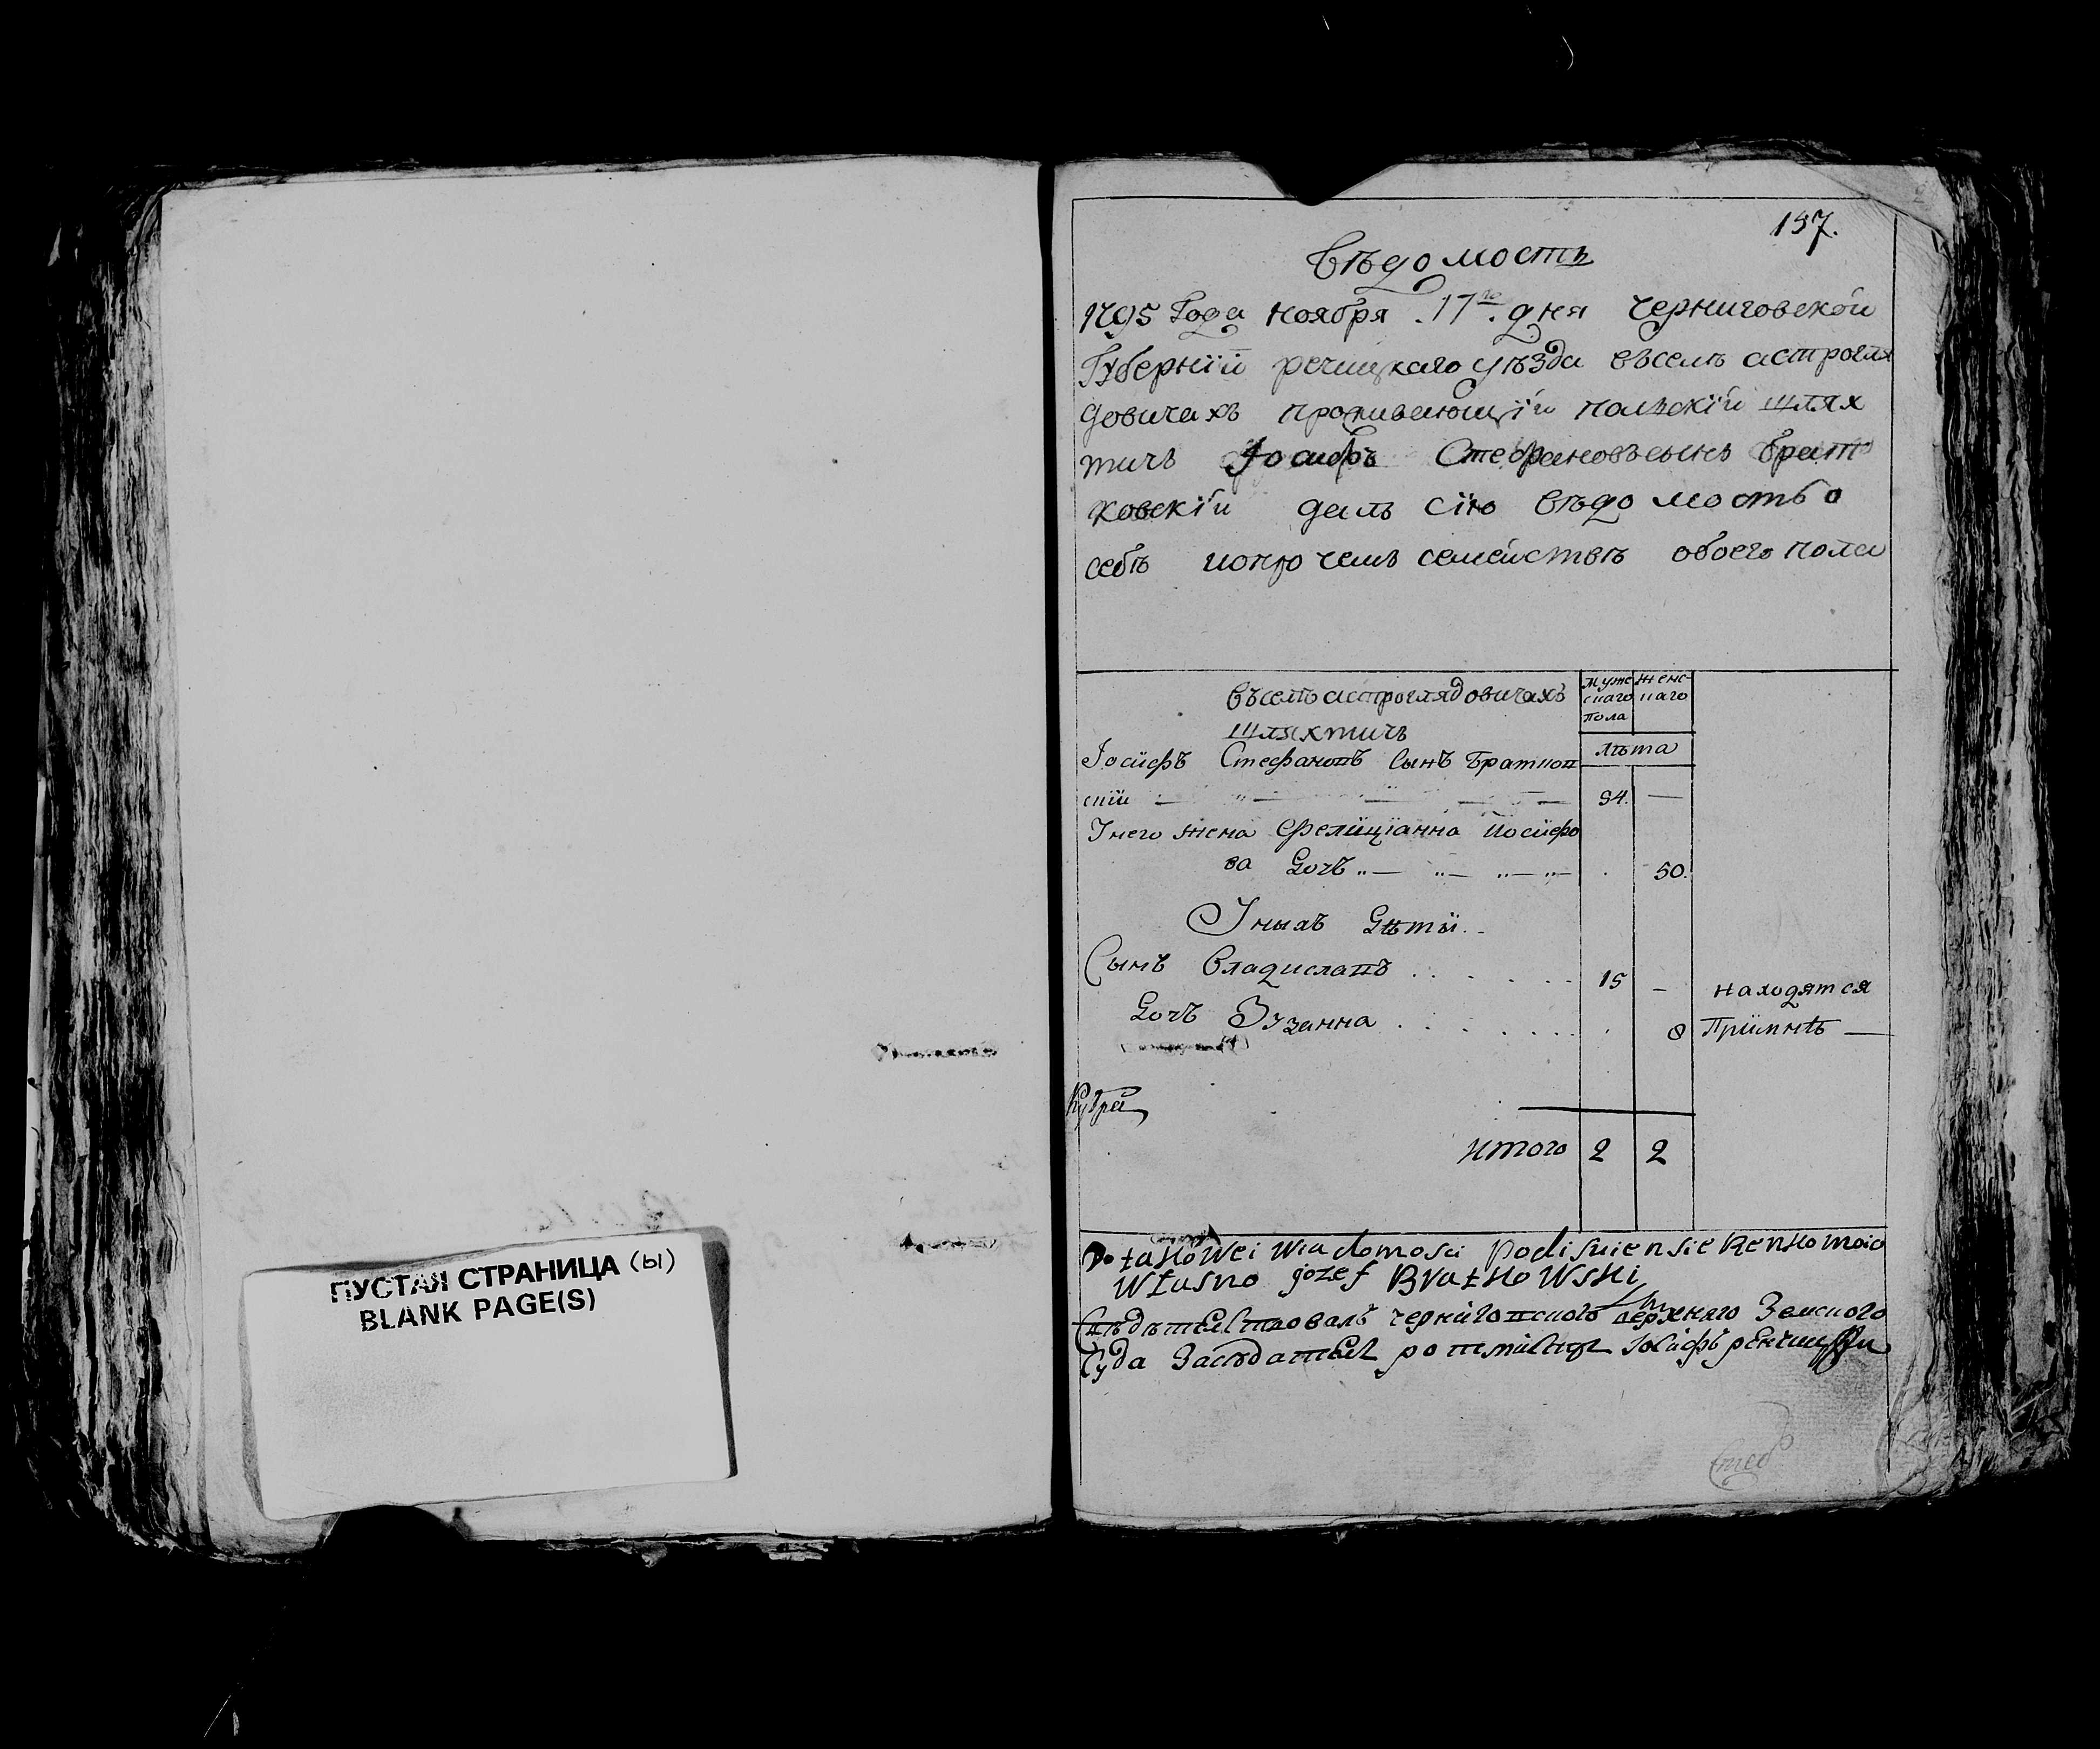 ПУСТАЯ СТРАНИЦА (ы)
BLANK PAGE(S)
157.
Вѣдомость
1795 Года ноября 17го дня Черниговской
Губерніи речицкаго уѣзда въселѣ астрогля
довичахъ проживающіи полскіи шлях
тичъ Іосифъ Стефановъсынъ Брат
ковскіи далъ сію вѣдомость о
себѣ ипротчемъ семействѣ обоего пола
въселѣ астроглядовичахъ
шляхтичъ
муже
скаго
пола
женс-
каго
лѣта
Іосифъ Стефановъ Сынъ Братков
скіи 54. —
Унего жена Фелиціанна Иосифо
ва Дочь 50.
Унихъ Дѣти
Сынъ Владиславъ 15 -
Дочь Зузанна 8
находятся
Примнѣ —
итого 2 2
Do takowei wiadomosci podisuiensie Renkomoio
własno Jozef Bratkowski
Свѣдѣтелствовалъ черниговского верхняго Земского
Суда Засѣдатель ротмистръ Іосифъ